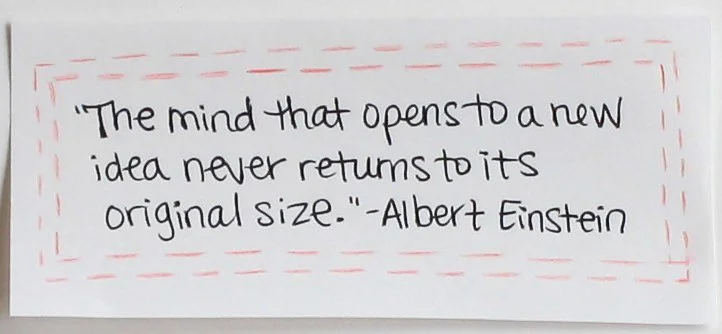 "The mind that opens to a new
idea never returns to its
original size." -Albert Einstein